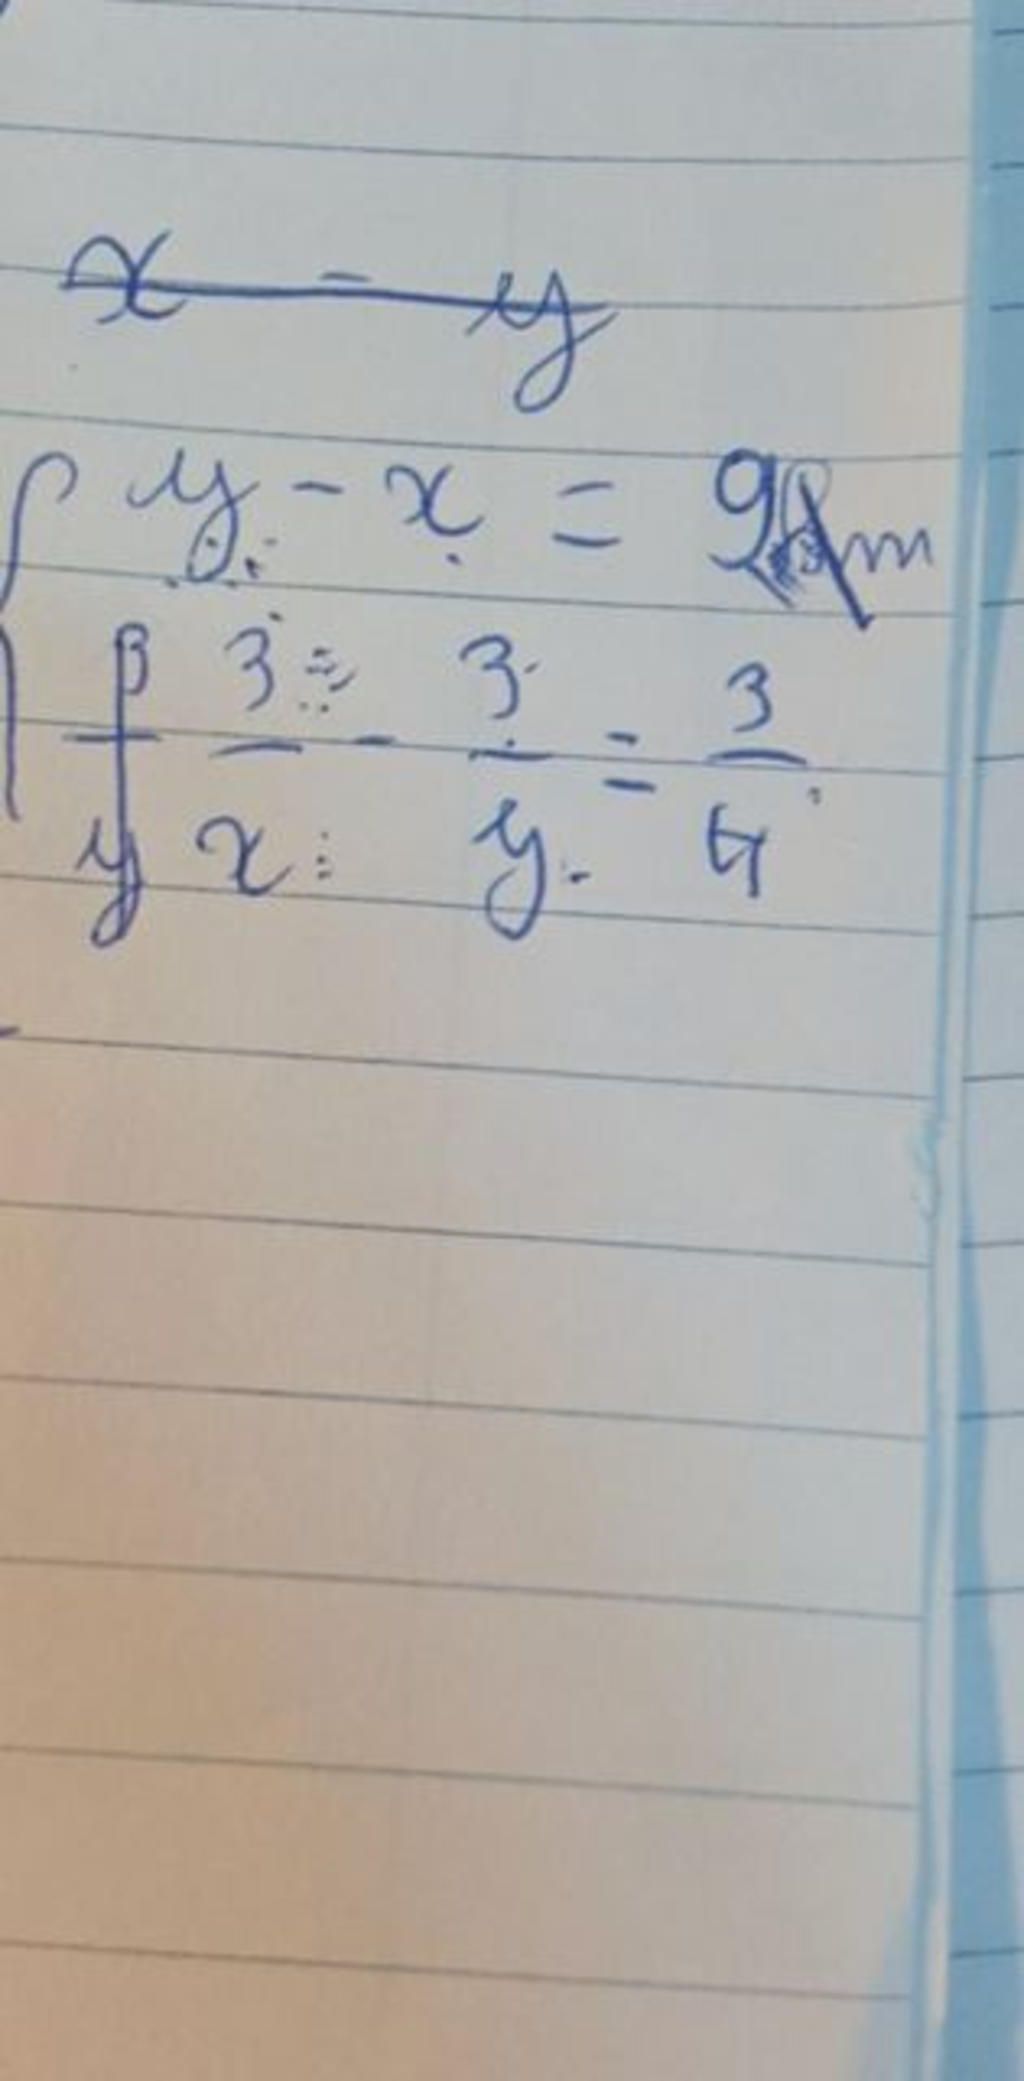 x - y
{ y - x = 9 m
3/y 3/x - 3/y = 3/4